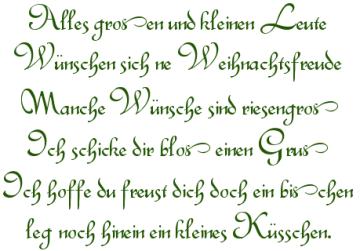 Alles großen und kleinen Leute
Wünschen sich ne Weihnachtsfreude
Manche Wünsche sind riesengroß
Ich schicke dir bloß einen Gruß
Ich hoffe du freust dich doch ein bißchen
leg noch hinein ein kleines Küsschen.